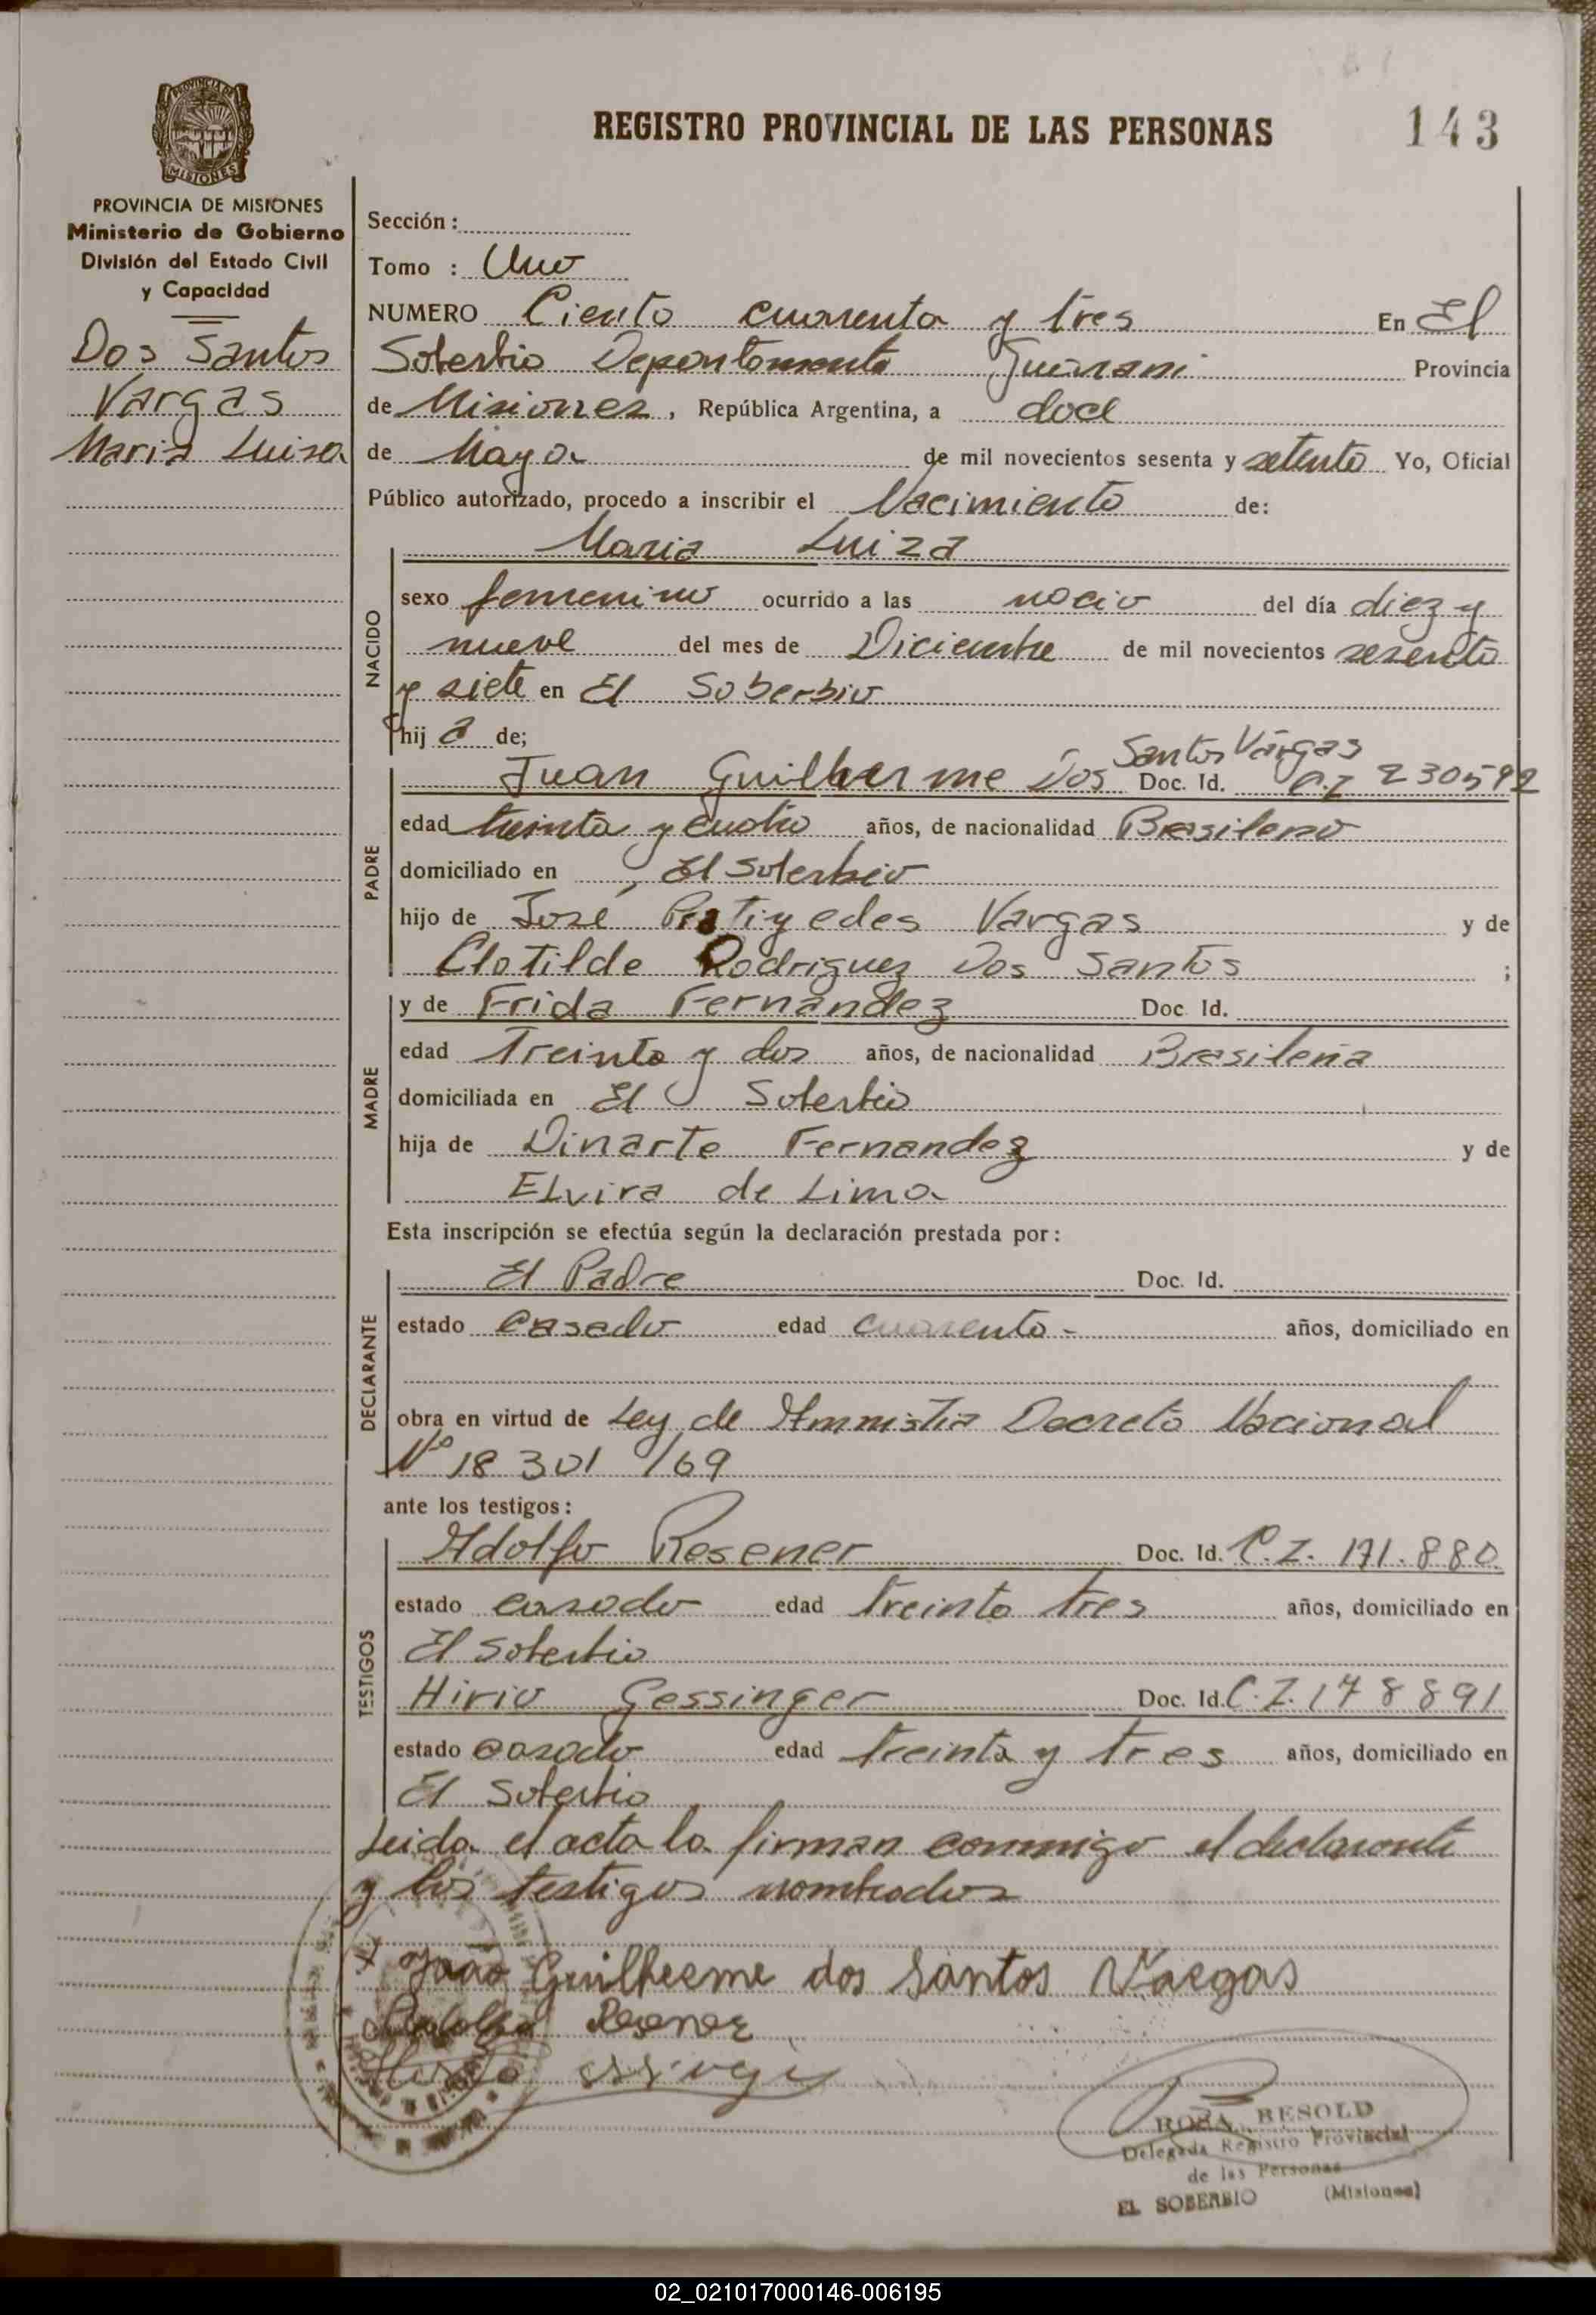 REGISTRO PROVINCIAL DE LAS PERSONAS
143
PROVINCIA DE MISIONES
PROVINCIA DE MISIONES
Ministerio de Gobierno
División del Estado Civil
y Capacidad
Dos Santos
Vargas
Maria Luisa
Sección :
Tomo : Uno
NUMERO Ciento cuarenta y tres En El
Soberbio Departamento Guarani Provincia
de Misiones, República Argentina, a doce
de Mayo de mil novecientos sesenta y setenta Yo, Oficial
Público autorizado, procedo a inscribir el Nacimiento de:
Maria Luiza
NACIDO
sexo femenino ocurrido a las del día diez y
nueve del mes de Diciembre de mil novecientos sesenta
y siete en El Soberbio
hij a de;
Santos Vargas
Juan Guilherme Dos Doc. Id. C.I 230592
PADRE
edad treinta y cuatro años, de nacionalidad Brasileno
domiciliado en El Soberbio
hijo de José Vargas y de
Clotilde Rodriguez Dos Santos ;
y de Frida Fernandez Doc. Id.
MADRE
edad Treinta y dos años, de nacionalidad Brasileña
domiciliada en El Soberbio
hija de Dinarte Fernandez y de
Elvira de Lima
Esta inscripción se efectúa según la declaración prestada por:
El Padre Doc. Id.
DECLARANTE
estado casado edad cuarenta - años, domiciliado en
obra en virtud de Ley de Amnistia Decreto Nacional
Nº 18 301 /69
ante los testigos:
TESTIGOS
Adolfo Resener Doc. Id. C.I. 171.880
estado casado edad treinta tres años, domiciliado en
El Soberbio
Hirio Gessinger Doc. Id. C.I. 178891
estado casado edad treinta y tres años, domiciliado en
El Soberbio
Leida el acta la firman conmigo el declarante
y los testigos nombrados
x João Guilherme dos Santos Vargas
Adolfo Resener
ROSA BESOLD
Delegada Registro Provincial
de las Personas
EL SOBERBIO (Misiones)
02_021017000146-006195